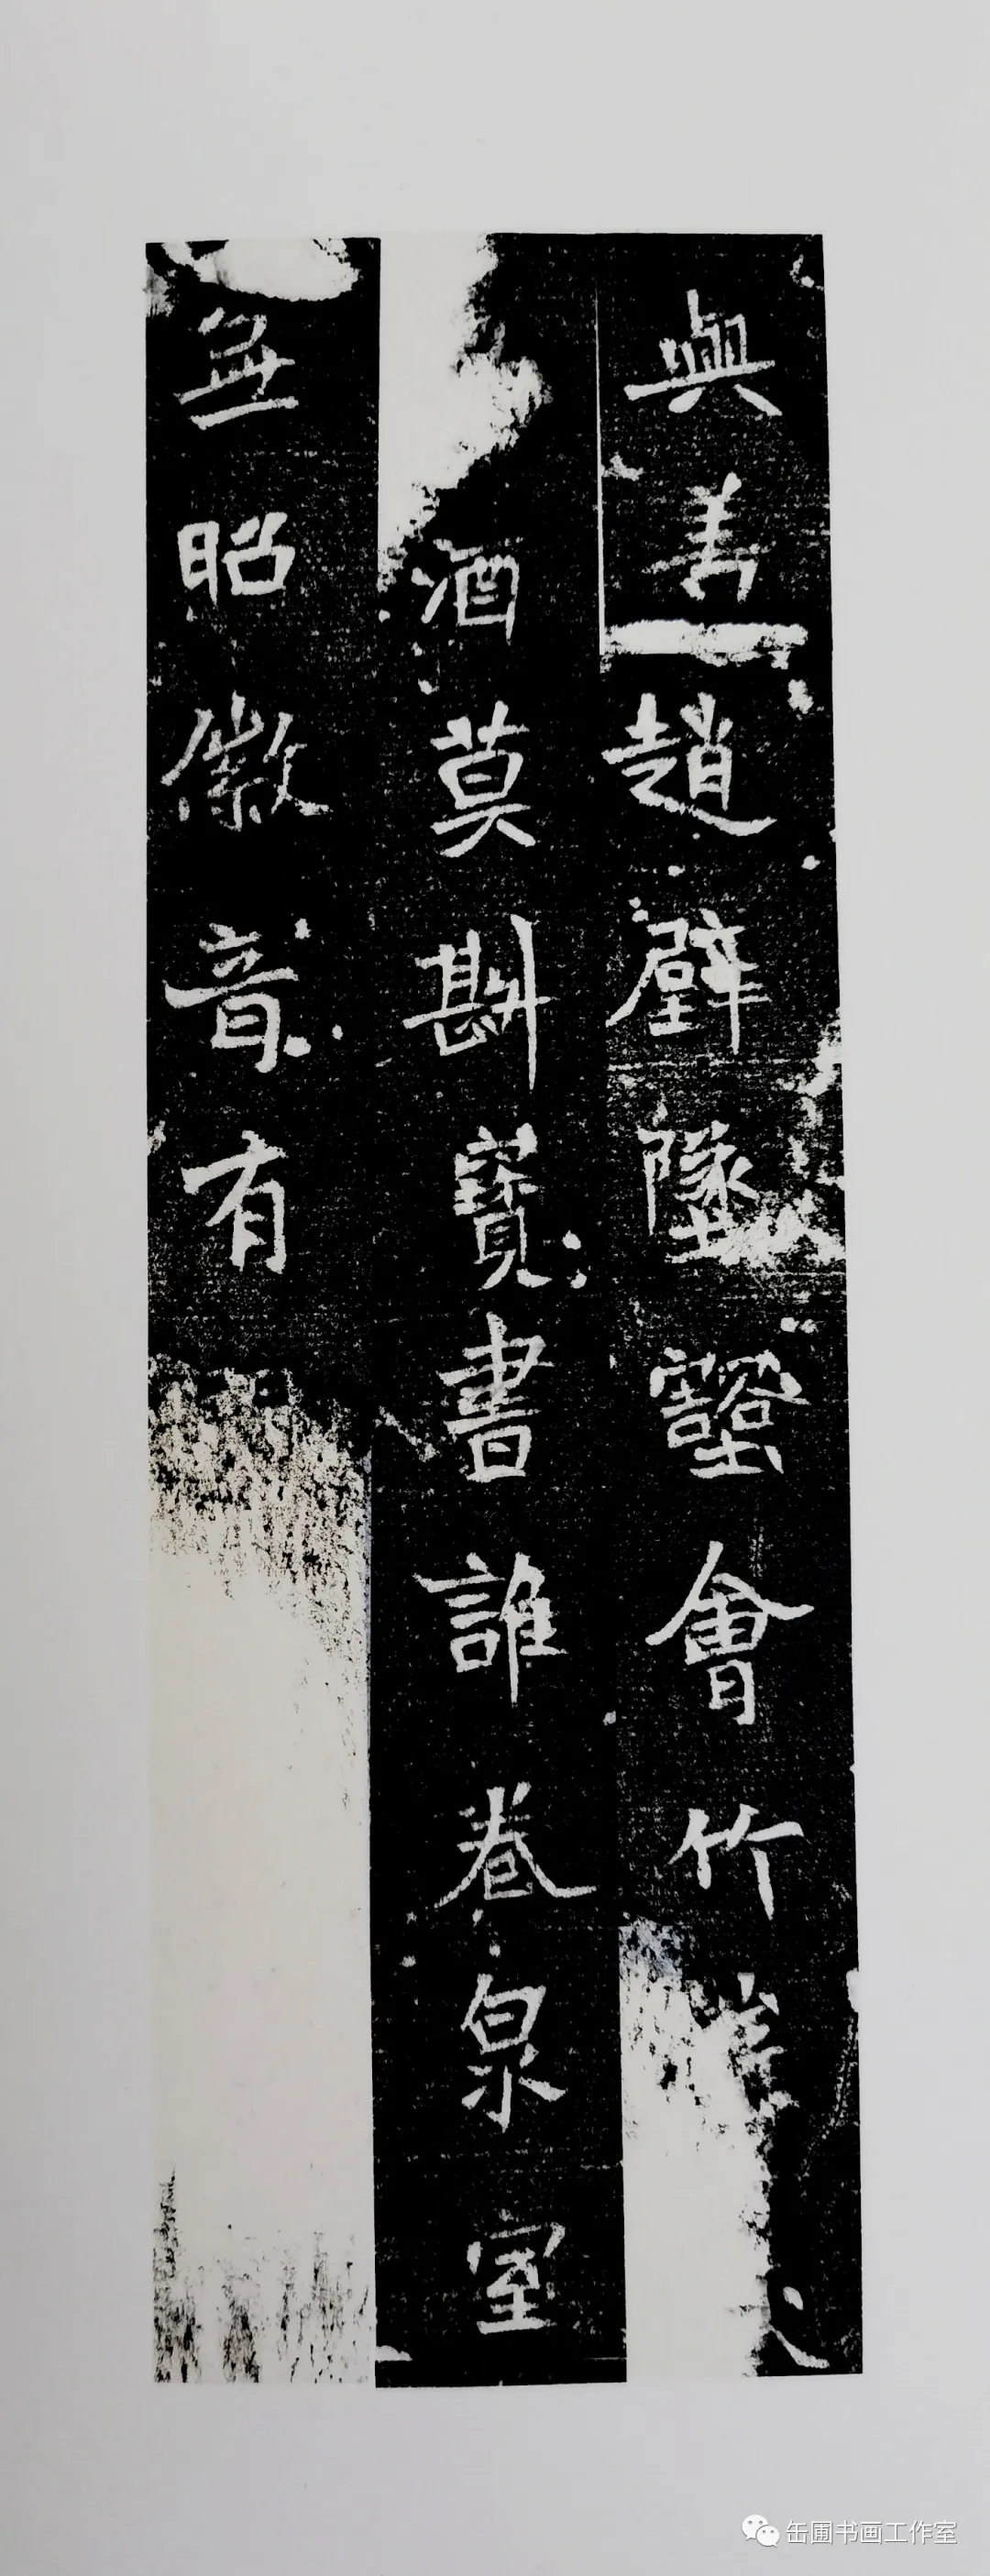 與善趙壁墜壑會竹
酒莫斟寶書誰卷泉室
無昭徽音有
缶圃书画工作室